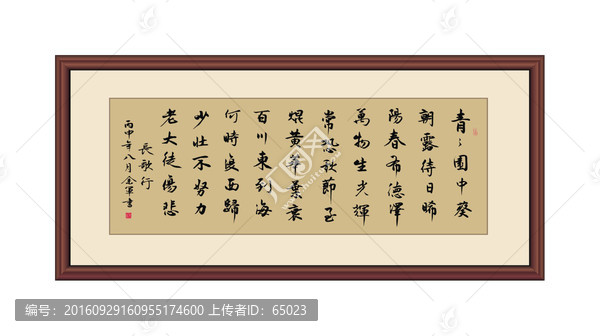 青々園中葵
朝露待日晞
陽春希德澤
萬物生光輝
常恐秋節至
焜黃華葉衰
百川東到海
何時復西歸
少壯不努力
老大徒傷悲
長歌行
丙申年八月金軍書
编号：20160929160955174600 上传者ID：65023